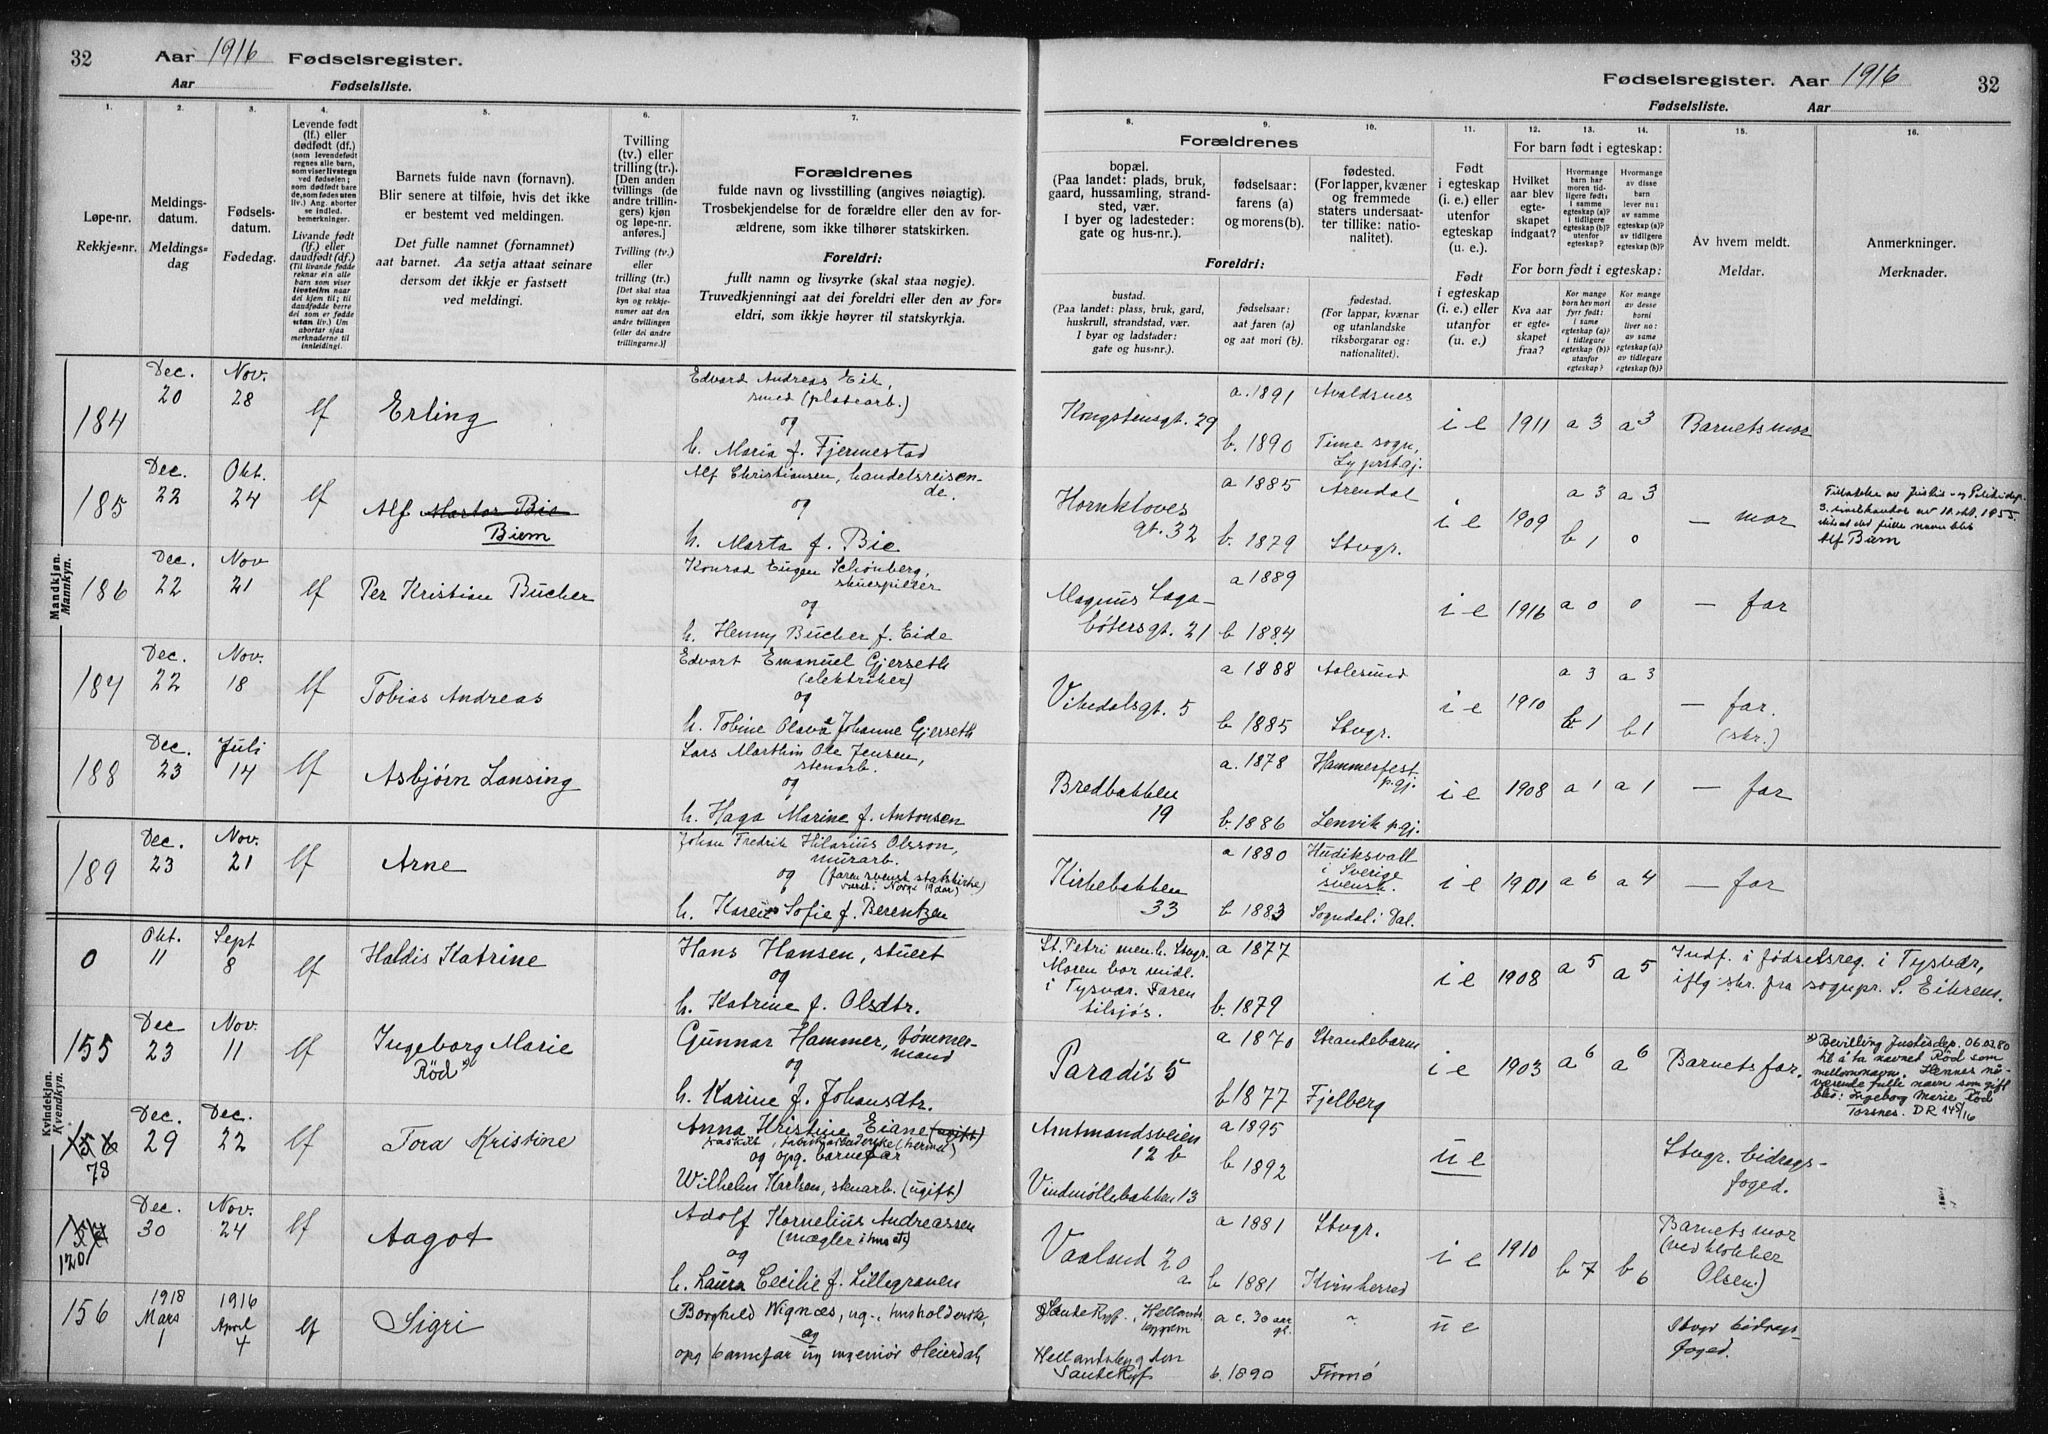 32
Aar 1916 Fødselsregister.
Aar Fødselsliste.
1.
Løpe-nr.
Rekkje-nr.
2.
Meldings-
datum.
Meldings-
dag
3.
Fødsels-
datum.
Fødedag.
4.
Levende født
(lf.) eller
dødfødt (df.)
(som levendefødt
regnes alle barn,
som viser livstegn
ved fødselen;
som dødfødt bare
de, som fødes uten
liv.) Ang. aborter
se indled.
bemerkninger.
Livande født
(lf.) eller
daudfødt (df.)
(Til livande fødde
reknar ein alle
barn som viser
livsteikn naar
dei kjem til; til
daudfødde berre
dei som er fødde
utan liv.) Um
abortar sjaa
merknaderne til
innleidingi.
5.
Barnets fulde navn (fornavn).
Blir senere at tilføie, hvis det ikke
er bestemt ved meldingen.
Det fulle namnet (fornamnet)
aat barnet. Aa setja attaat seinare
dersom det ikkje er fastsett
ved meldingi.
6.
Tvilling
(tv.) eller
trilling (tr.)
[Den anden
tvillings (de
andre trillin-
gers) kjøn
og løpe-nr.
anføres.]
Tvilling (tv.)
eller
trilling (tr.)
[Det skal staa
kyn og rekkje-
numer aat den
andre tvillingen
(eller dei andre
trillingarne.)]
7.
Forældrenes
fulde navn og livsstilling (angives nøiagtig).
Trosbekjendelse for de forældre eller den av for-
ældrene, som ikke tilhører statskirken.
Foreldri:
fullt namn og livsyrke (skal staa nøgje).
Truvedkjenningi aat dei foreldri eller den av for-
eldri, som ikkje høyrer til statskyrkja.
Mandkjøn.
Mannkyn.
184 Dec. 20 Nov. 28 lf Erling
Edvard Andreas Eik,
smed (platearb.)
og
h. Maria f. Fjermestad
185 Dec. 22 Okt. 24 lf Alf Martor Bie
Biem
Alf Christiansen, handelsreisen-
de.
og
h. Marta f. Bie
186 Dec. 22 Nov 21 lf Per Kristian Bucher
Konrad Eugen Schönberg,
skuespiller
og
h. Henny Bucher f. Eide
184 Dec. 22 Nov. 18 lf Tobias Andreas
Edvart Emanuel Gjerseth
(elektriker)
og
h. Tobine Olava Johanne Gjerseth
188 Dec. 23 Juli 14 lf Asbjørn Lansing
Lars Marthin Ole Jensen,
stenarb.
og
h. Haga Marine f. Antonsen
189 Dec. 23 Nov. 21 lf Arne
Johan Fredrik Hilarius Olsson,
murarb.
og (faren svensk statskirke)
været i Norge 19 aar)
h. Karen Sofie f. Berentzen
Kvindekjøn.
Kvendkyn.
0 Okt. 11 Sept 8 lf Haldis Katrine
Hans Hansen, stuert
og
h. Katrine f. Olsdtr.
155 Dec 23 Nov. 11 lf Ingeborg Marie
Rød
Gunnar Hammer, tømmer-
mand
og
h. Karine f. Johansdtr.
156 78 Dec. 29 Dec. 22 lf Tora Kristine
Anna Kristine Eiane (ugift)
fraskilt, fabrikarbeiderske (hermet)
og opg. barnefar
Wilhelm Karlsen, skuarb. (ugift)
120 Dec. 30 Nov. 24 lf Aagot
Adolf Kornelius Andreassen
(mægler i hus etc)
og
h. Laura Cecilie f. Lillegraven
156 1918 Mars 1 1916 April 4 lf Sigri
Borghild Vignæs, ug., husholderske,
og
opg barnefar ug ingeniør Heierdal,
Fødselsregister. Aar 1916 32
Fødselsliste. Aar
8.
9.
10.
Forældrenes
bopæl.
(Paa landet: plads, bruk,
gaard, hussamling, strand-
sted, vær.
I byer og ladesteder:
gate og hus-nr.).
fødselsaar:
farens (a)
og morens (b).
fødested.
(For lapper, kvæner
og fremmede
staters undersaat-
ter tillike: natio-
nalitet).
Foreldri:
bustad.
(Paa landet: plass, bruk, gard,
huskrull, strandstad, vær.
I byar og ladstader:
gate og hus-nr.).
fødselsaar:
aat faren (a)
og aat mori (b).
fødestad.
(For lappar, kvænar
og utanlandske
riksborgarar og:
nationalitet).
11.
Født
i egteskap
(i. e.) eller
utenfor
egteskap
(u. e.).
Født
i egteskap
(i. e.) eller
utanfor
(u. e.).
12.
13.
14.
For barn født i egteskap:
Hvilket
aar blev
egte-
skapet
indgaat?
Hvormange
barn har
moren tid-
ligere født:
i samme
egteskap (a)?
i tidligere
egteskap (b)?
utenfor
egteskap?
Hvormange
av disse
barn
lever nu:
av samme
egteskap (a)?
av tidligere
egteskap (b)?
For born født i egteskap:
Kva aar
er egte-
skapet
fraa?
Kor mange
born hev mori
fyrr født:
i same
egteskap (a)?
i tidlegare
egteskap (b)?
utanfor
egteskap?
Kor mange
av desse
borni
liver no:
av same
egteskap (a)?
av tidlegare
egteskap (b)?
15.
Av hvem meldt.
Meldar.
16.
Anmerkninger.
Merknader.
Kongstensgt. 29 a. 1891 Avaldsnes i e 1911 a 3 a 3 Barnets mor
b. 1890 Time sogn,
Ly prstgj.
Hornkloves
gt. 32 a 1885 Arendal i e 1909 a 3 a 3 — mor
b. 1879 Stvgr. b 1 0
Tillatelse av Justis- og Politidep.
3. sivilkontor av 10. okt. 1955.
til at det fulle navn blir
Alf Biem
Magnus Laga-
bøtersgt. 21 a 1889 i e 1916 a 0 0 — far
b 1884
Vikedalsgt. 5 a 1888 Aalesund i e 1910 a 3 a 3 — far.
b 1885 Stvgr. b 1 b 1 (skr.)
Bredbakken
19 a. 1878 Hammerfest
p.gj. i e 1908 a 1 a 1 — far
b. 1886 Lenvik pgj.
Kirkebakken
33 a 1880 Hudiksvall
i Sverige
svensk. i e 1901 a 6 a 4 — far
b 1883 Sogndal i Dal.
St. Petri men. h. Stvgr.
Moren bor midl.
i Tysvær. Faren
tilsjøs. a 1877 i e 1908 a 5 a 5
b. 1879
Indf. i fødselsreg. i Tysvær,
iflg skr. fra sognepr. S. Eikrem.
Paradis 5 a 1870 Strandebarm i e 1903 a 6 a 6 Barnets far.
b 1877 Fjelberg
Bevilling Justisdep. 06.02.80
til å ta navnet Rød som
mellomnavn. Hennes nå-
værende fulle navn som gift
blir: Ingeborg Marie Rød
Torsnes. DR 145/16
Amtmandsveien
12 b a 1895 u e Stvgr. bidrags-
foged.
b 1892
Vindmøllebakken 13
Vaaland 20
a a 1881 Stvgr. i e 1910 b 7 b 6 Barnets mor
(ved klokker
Olsen.)
b 1881 Kvinherred
Sande Ryf., Hellands-
bygden a c. 30 aar
gl. u e Stvgr bidrags-
foged.
Hellandsbygden
Sande Ryf b. 1890 Finnø